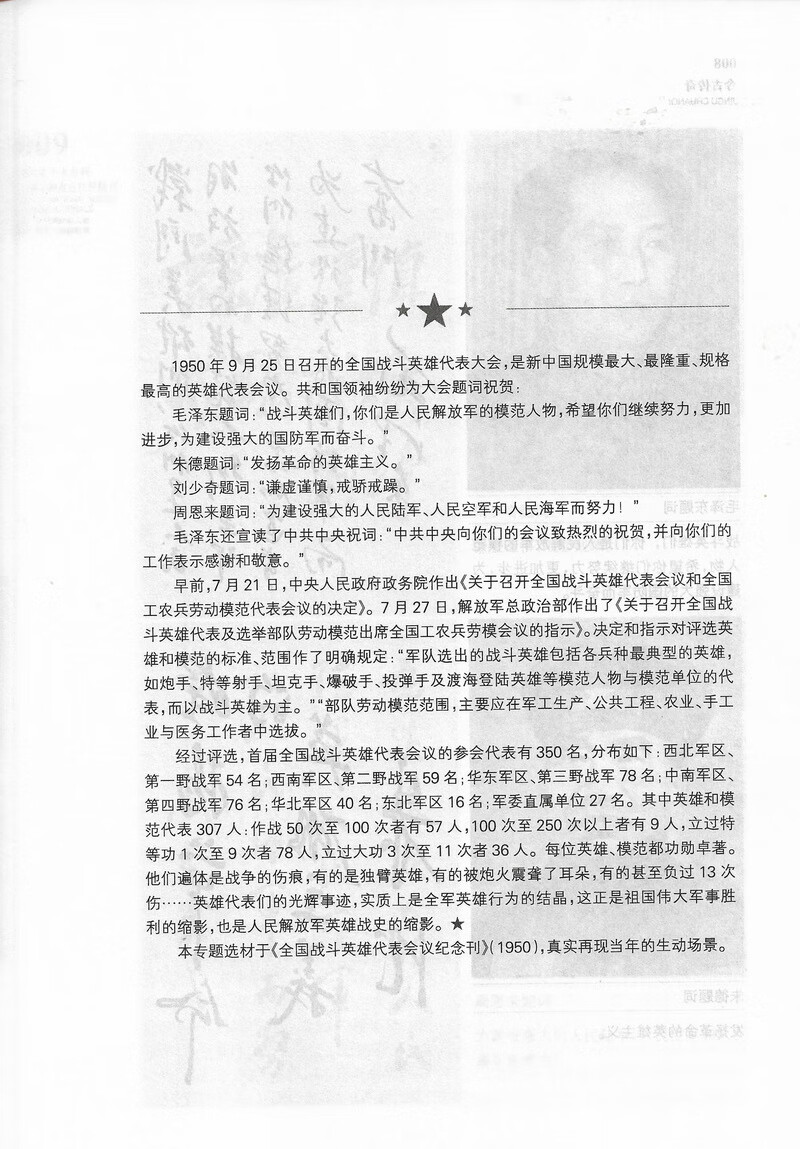 1950年9月25日召开的全国战斗英雄代表大会，是新中国规模最大、最隆重、规格
最高的英雄代表会议。共和国领袖纷纷为大会题词祝贺：
毛泽东题词：“战斗英雄们，你们是人民解放军的模范人物，希望你们继续努力，更加
进步，为建设强大的国防军而奋斗。”
朱德题词：“发扬革命的英雄主义。”
刘少奇题词：“谦虚谨慎，戒骄戒躁。”
周恩来题词：“为建设强大的人民陆军、人民空军和人民海军而努力！”
毛泽东还宣读了中共中央祝词：“中共中央向你们的会议致热烈的祝贺，并向你们的
工作表示感谢和敬意。”
早前，7月21日，中央人民政府政务院作出《关于召开全国战斗英雄代表会议和全国
工农兵劳动模范代表会议的决定》。7月27日，解放军总政治部作出了《关于召开全国战
斗英雄代表及选举部队劳动模范出席全国工农兵劳模会议的指示》。决定和指示对评选英
雄和模范的标准、范围作了明确规定：“军队选出的战斗英雄包括各兵种最典型的英雄，
如炮手、特等射手、坦克手、爆破手、投弹手及渡海登陆英雄等模范人物与模范单位的代
表，而以战斗英雄为主。”“部队劳动模范范围，主要应在军工生产、公共工程、农业、手工
业与医务工作者中选拔。”
经过评选，首届全国战斗英雄代表会议的参会代表有350名，分布如下：西北军区、
第一野战军54名；西南军区、第二野战军59名；华东军区、第三野战军78名；中南军区、
第四野战军76名；华北军区40名；东北军区16名；军委直属单位27名。其中英雄和模
范代表307人：作战50次至100次者有57人，100次至250次以上者有9人，立过特
等功1次至9次者78人，立过大功3次至11次者36人。每位英雄、模范都功勋卓著。
他们遍体是战争的伤痕，有的是独臂英雄，有的被炮火震聋了耳朵，有的甚至负过13次
伤……英雄代表们的光辉事迹，实质上是全军英雄行为的结晶，这正是祖国伟大军事胜
利的缩影，也是人民解放军英雄战史的缩影。★
本专题选材于《全国战斗英雄代表会议纪念刊》（1950），真实再现当年的生动场景。